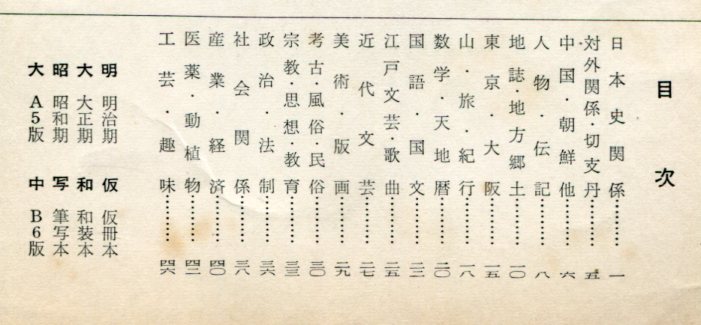 目次
日本史関係………一
対外関係・切支丹……五
中国・朝鮮他………六
人物・伝記………八
地誌・地方郷土………一〇
東京・大阪………一五
山・旅・紀行………一八
数学・天地暦………二〇
国語・国文………二二
江戸文芸・歌曲………二五
近代文芸………二七
美術・版画………二九
考古・風俗・民俗………三〇
宗教・思想・教育………三三
政治・法制………三六
社会関係………三八
産業・経済………四〇
医薬・動植物………四二
工芸・趣味………四六
明 明治期 仮 仮冊本
大 大正期 和 和装本
昭 昭和期 写 筆写本
大 A5版 中 B6版